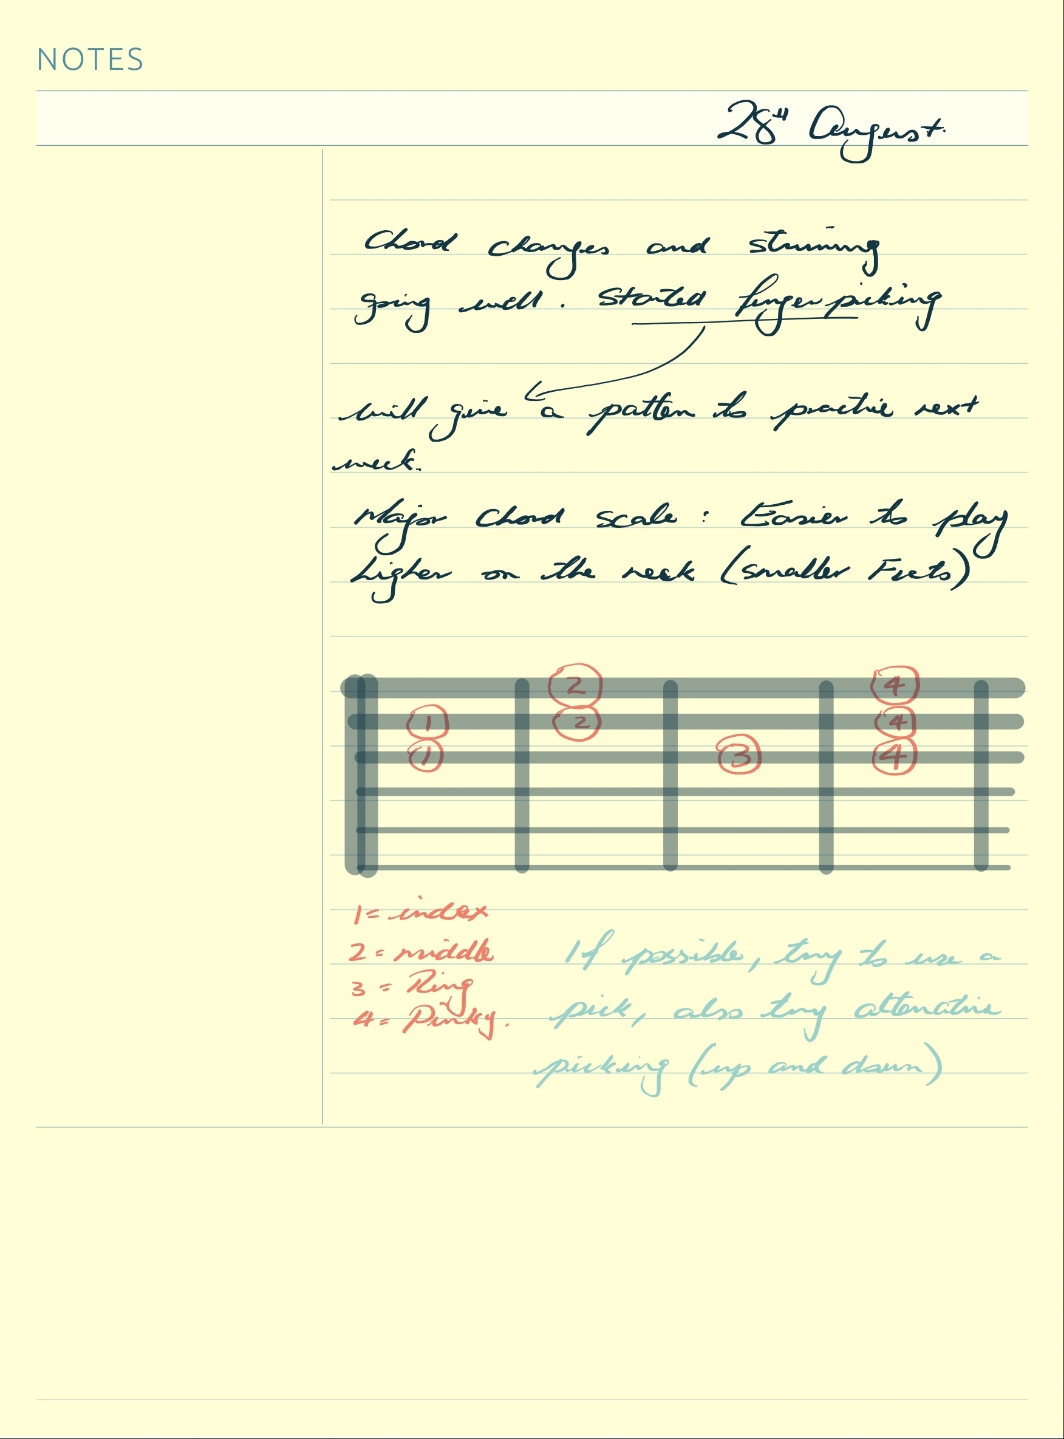 NOTES
28th August.
Chord changes and struming
going well. Started finger picking
will give a patten to practise next
week.
Major Chord scale: Easier to play
higher on the neck (smaller Frets)
2 4
1 2 4
1 3 4
1 = index
2 = middle
3 = Ring
4 = Pinky.
If possible, try to use a
pick, also try alternative
picking (up and down)